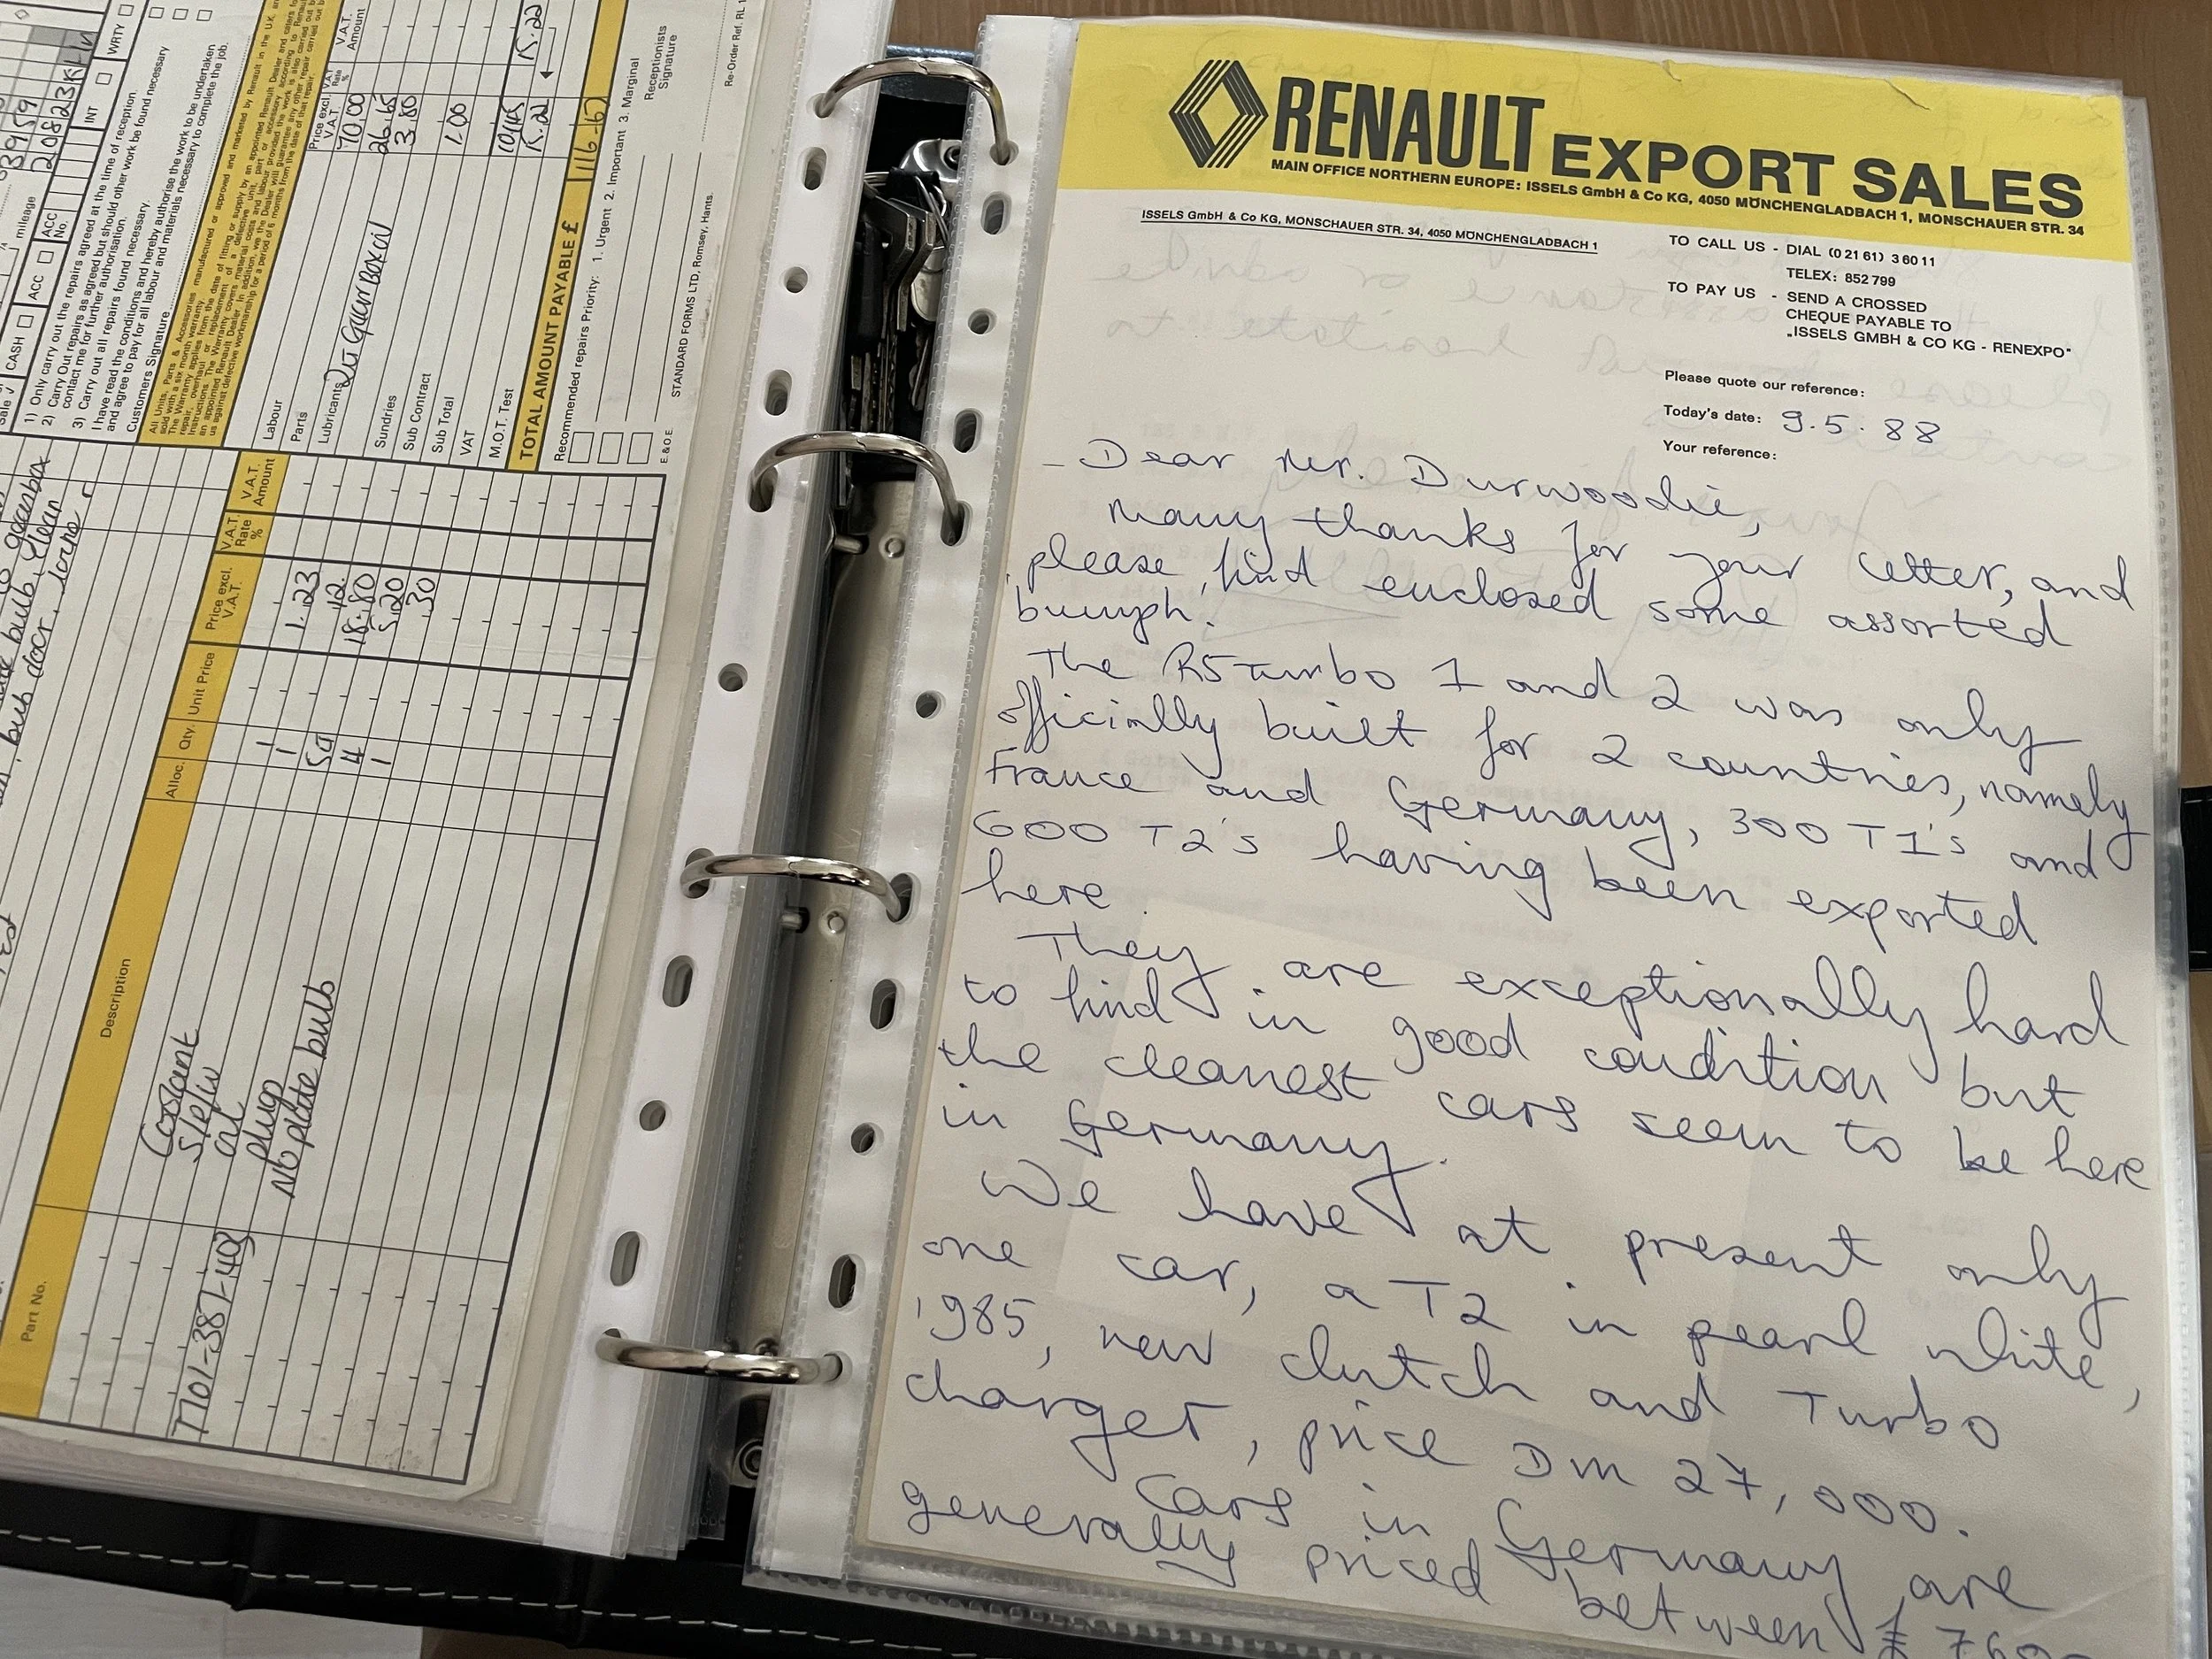 RENAULT EXPORT SALES
MAIN OFFICE NORTHERN EUROPE: ISSELS GmbH & Co KG, 4050 MÖNCHENGLADBACH 1, MONSCHAUER STR. 34
ISSELS GmbH & Co KG, MONSCHAUER STR. 34, 4050 MÖNCHENGLADBACH 1
TO CALL US - DIAL (0 21 61) 3 60 11
TELEX: 852 799
TO PAY US - SEND A CROSSED
CHEQUE PAYABLE TO
„ISSELS GMBH & CO KG - RENEXPO"
Please quote our reference:
Today's date: 9.5.88
Your reference:
Dear Mr. Durwoodie,
many thanks for your letter, and
please find enclosed some assorted
bumph.
The R5 Turbo 1 and 2 was only
officially built for 2 countries, namely
France and Germany, 300 T1's and
600 T2's having been exported
here.
They are exceptionally hard
to find in good condition but
the cleanest cars seem to be here
in Germany.
We have at present only
one car, a T2 in pearl white,
1985, new clutch and Turbo
charger, price DM 27,000.
Cars in Germany are
generally priced between £
mileage
CASH
ACC
ACC No.
INT
WRTY
1) Only carry out the repairs agreed at the time of reception.
2) Carry Out repairs as agreed but should other work be found necessary
contact me for further authorisation.
3) Carry out all repairs found necessary.
I have read the conditions and hereby authorise the work to be undertaken
and agree to pay for all labour and materials necessary to complete the job.
Customers Signature
Price excl. V.A.T.
V.A.T. Rate %
V.A.T. Amount
Labour 70.00
Parts 26.65
Lubricants 3.80
Sundries 1.00
Sub Contract
Sub Total
VAT 15.22
M.O.T. Test
TOTAL AMOUNT PAYABLE £ 116-67
Recommended repairs Priority: 1. Urgent 2. Important 3. Marginal
Receptionists
Signature
E.&O.E.
STANDARD FORMS LTD, Romsey, Hants.
Part No. Description Alloc. Qty. Unit Price Price excl. V.A.T. V.A.T. Rate % V.A.T. Amount
1 1.23
1 .42
oil 18.80
plugs 4 5.20
No plate bulb 1 .30